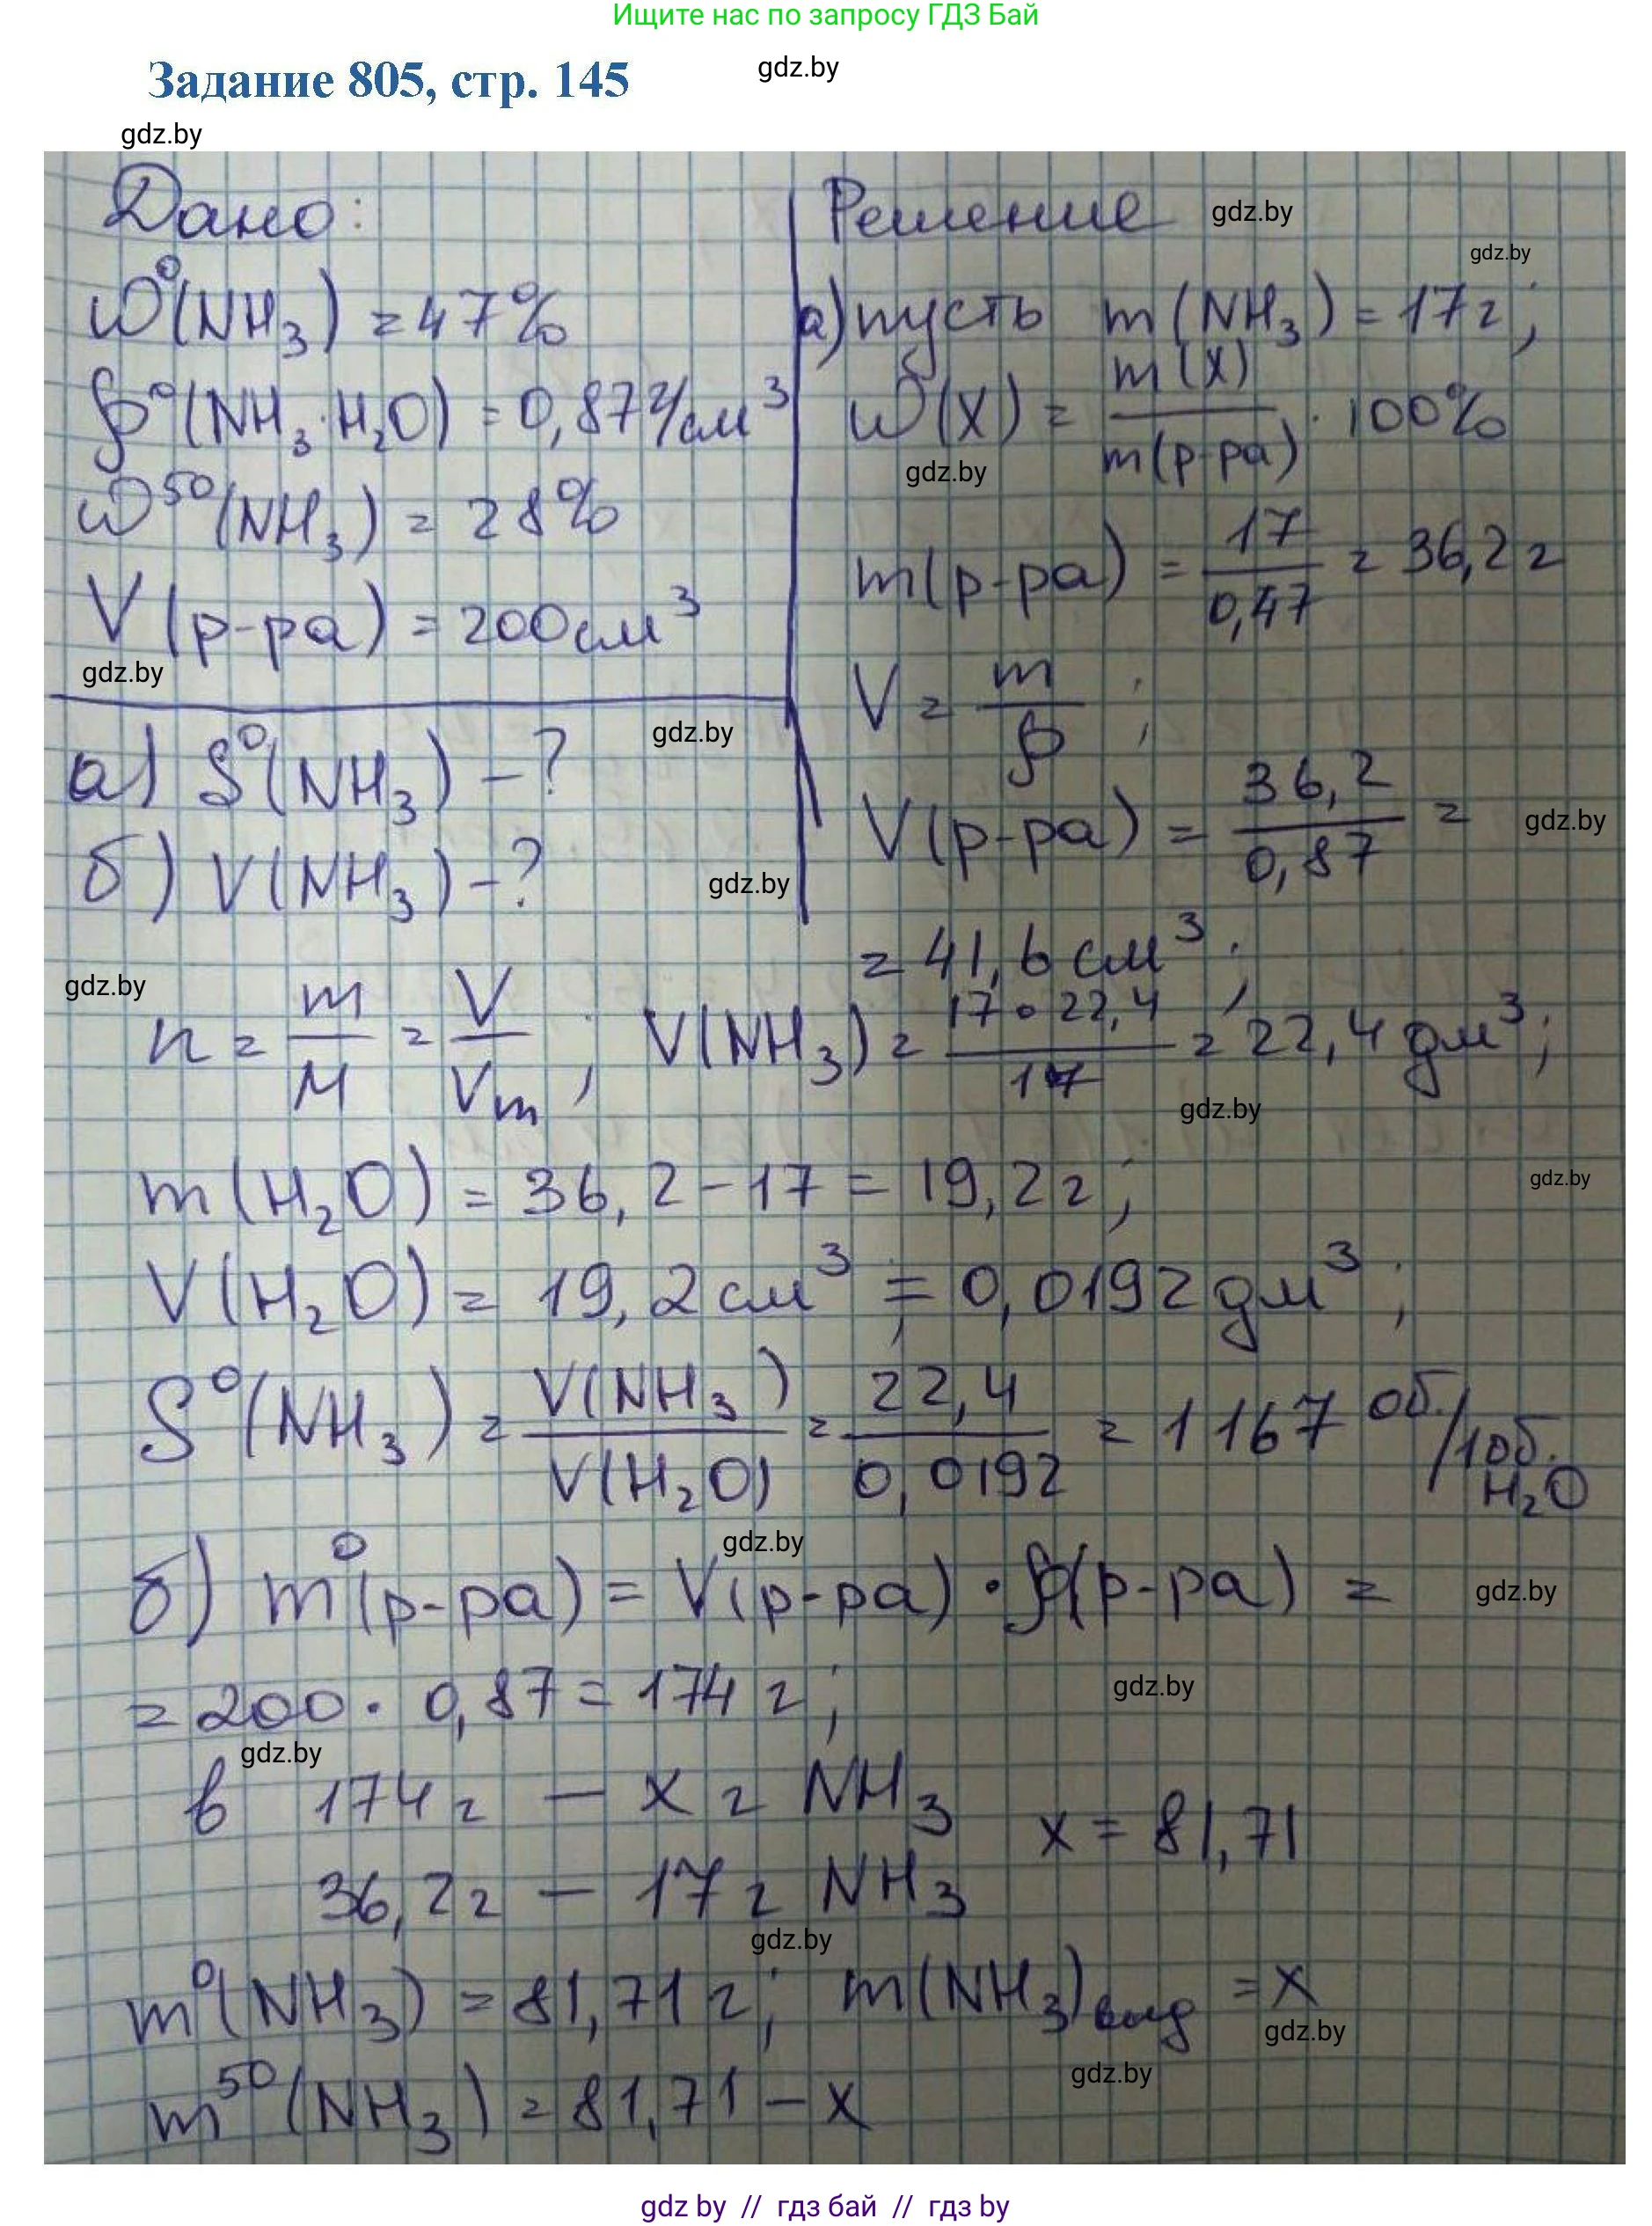 Ищите нас по запросу ГДЗ Бай
Задание 805, стр. 145
gdz.by
gdz.by
Дано:
ω⁰(NH₃) = 47%
ρ⁰(NH₃·H₂O) = 0,87 г/см³
ω⁵⁰(NH₃) = 28%
V(р-ра) = 200 см³
gdz.by
а) S⁰(NH₃) - ?
gdz.by
б) V(NH₃) - ?
gdz.by
Решение
gdz.by
gdz.by
а) пусть m(NH₃) = 17 г;
ω(X) = m(X) / m(р-ра) · 100%
gdz.by
m(р-ра) = 17 / 0,47 = 36,2 г
V = m / ρ ;
V(р-ра) = 36,2 / 0,87 =
gdz.by
= 41,6 см³ ;
gdz.by
n = m / M = V / Vm ; V(NH₃) = 17 · 22,4 / 17 = 22,4 дм³ ;
gdz.by
m(H₂O) = 36,2 - 17 = 19,2 г ;
gdz.by
V(H₂O) = 19,2 см³ ; = 0,0192 дм³ ;
S⁰(NH₃) = V(NH₃) / V(H₂O) = 22,4 / 0,0192 = 1167 об. / 1 об. H₂O
gdz.by
б) m⁰(р-ра) = V(р-ра) · ρ(р-ра) =
gdz.by
= 200 · 0,87 = 174 г ;
gdz.by
gdz.by
в 174 г — x г NH₃
x = 81,71
36,2 г — 17 г NH₃
gdz.by
m⁰(NH₃) = 81,71 г; m(NH₃)выд = x
gdz.by
gdz.by
m⁵⁰(NH₃) = 81,71 - x
gdz by // гдз бай // гдз by